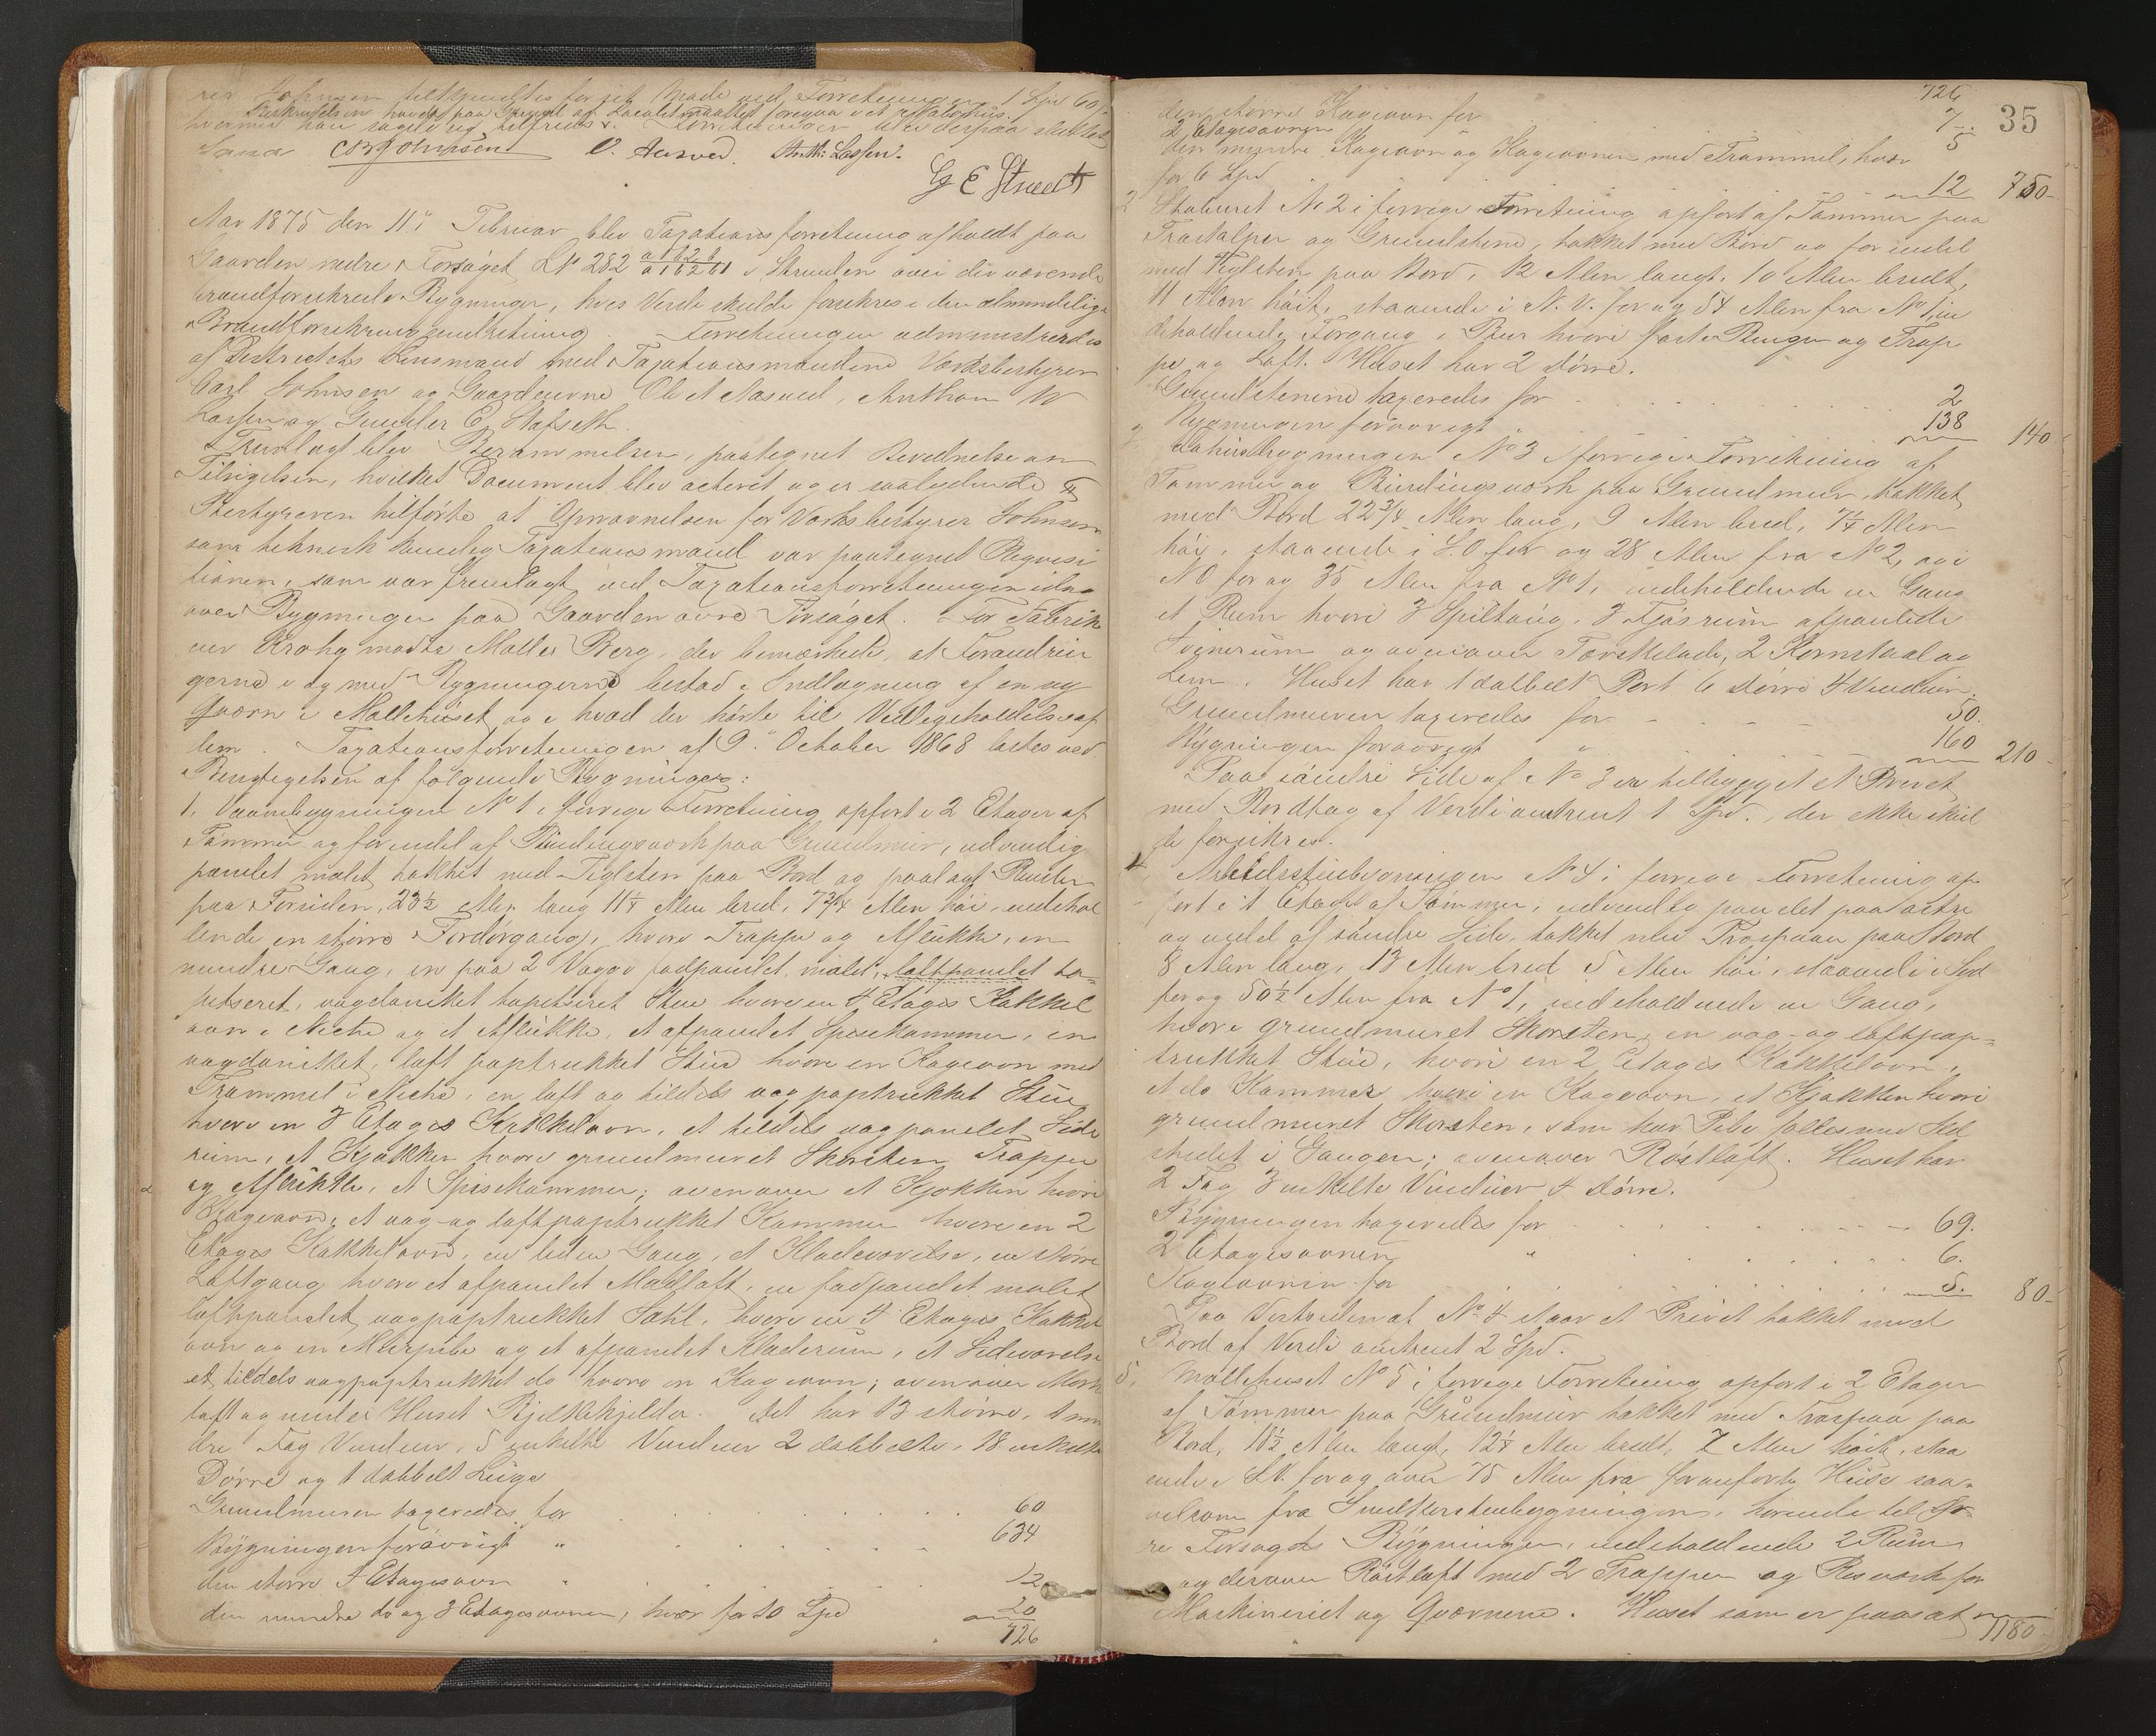 Johnsen tilkjendtes for sit Møde ved Forretningen 1 Spd 60
Beskrivelsen havdes paa Grund af Localet maattes foregaa i et
hvormed han sagde sig tilfreds. Forretningen blev derpaa sluttet
C W Johnsen O. Aasved. Anth: Lassen.
G E Stueeth
Aar 1875 den 11te Februar blev Taxationsforretning afholdt paa
Gaarden nedre Forsøget LNo 282 i Skrunden over de værende
brandforsikrede Bygninger, hvis Verdi skulde forsikres i den almindelige
Brandforsikringsindretning Forretningen administreredes
af Districtets Lensmand med Taxationsmændene Værksbestyrer
Carl Johnsen og Gaardeierne Ole A Aasved, Anthon W
Lassen og Gunder E. Hafseth.
Fremlagt blev Berammelsen, paategnet Bevidnelse om
Tilsigelsen, hvilket Document blev acteret og er saalydende
Bestyreren tilførte at Opnævnelsen for Værksbestyrer Johnsen
som teknisk kyndig Taxationsmand var paategnet Reqvisi
tionen, som var fremlagt ved Taxationsforretningen idag
over Bygninger paa Gaarden øvre Forsøget. For Fabrik
eier Krohg mødte Møller Berg, der bemærkede, at Forandrin
gerne i og med Bygningerne bestod i Indlægning af en ny
Qværn i Møllehuset og i hvad der hørte til Vedligeholdelse af
dem. Taxationsforretningen af 9de October 1868 læstes ved
Besigtigelsen af følgende Bygninger:
1. Vaaningsbygningen No 1 i forrige Forretning opført i 2 Etager af
Tømmer og for endel af Bindingsværk paa Grundmur, udvendig
panelet malet takket med Teglsten paa Bord og paalagt Render
paa Forsiden, 23½ Alen lang 11¼ Alen bred, 7¾ Alen høi, indehol
dende en større Fordørgang, hvori Trappe og Aflukke, en
mindre Gang, en paa 2 Vægge fodpanelet malet, loftpanelet ta-
petseret, en tapetseret Stue hvori en 4 Etages Kakkel
ovn i Niche og et Aflukke, et afpanelet Spisekammer, en
loft paptrukket Stue hvori en Kageovn med
Trommel i Niche, en loft og tildels vægpaptrukket Stue
hvori en 3 Etages Kakkelovn, et tildels vægpanelet Side
rum, et Kjøkken hvori grundmuret Skorsten Trappe
og Aflukke, et Spisekammer; ovenover et Kjøkken hvori
Kageovn, et væg- og loftpaptrukket Kammer hvori en 2
Etages Kakkelovn, en liden Gang, et Kladeværelse, en større
Loftgang hvori et afpanelet Madloft, en fodpanelet malet
loftpanelet vægpaptrukket Sahl, hvori en 4 Etages Kakkel
ovn og en Murpibe og et afpanelet Kladerum, et Sideværelse
et tildels vægpaptrukket do hvori en Kageovn; ovenover Mørk
loft og under Huset Bjelkekjelder. Det har 13 større, 1 min
dre Fag Vinduer, 5 enkelte Vinduer 2 dobbelte, 18 enkelte
Dørre og 1 dobbelt Luge
Grundmuren taxeredes for 60
Bygningen forøvrigt " 634
den større 4 Etagesovn " 12
den mindre do og 3 Etagesovnen, hver for 10 Spd 20
726
726 35
den større Kageovn for 7
2 Etagesovnen 5
den mindre Kageovn og Kageovnen med Trommel, hver
for 6 Spd 12 750
2 Stabburet No 2 i forrige Forretning opført af Tømmer paa
Træstolper og Grundstene, takket med Bord og for endel
med Teglsten paa Bord, 12 Alen langt, 10 Alen bredt,
11 Alen høit, staaende i N. V. for og 54 Alen fra No 1, in
deholdende Forgang, Bur hvori faste Binger og Trap
pe og Loft. Huset har 2 Dørre.
Grundstenene taxeredes for 2
Bygningen forøvrigt 138 140
3 Udhusbygningen No 3 i forrige Forretning af
Tømmer og Bindingsværk paa Grundmur, takket
med Bord 22¾ Alen lang, 9 Alen bred, 7¼ Alen
høi, staaende i S.O for og 28 Alen fra No 2, og i
N O for og 35 Alen fra No 1, indeholdende en Gang
et Rum hvori 3 Spiltoug, 3 Fjøsrum afpanelede
Svinerum og ovenover Tærskelade, 2 Kornstaal og
Lem. Huset har 1 dobbelt Port 6 Dørre 4 Vinduer.
Grundmuren taxeredes for 50.
Bygningen forøvrigt " 160 210
Paa søndre Side af No 3 er tilbygget et Privet
med Bordtag af Verdi omtrent 1 Spd., der ikke skul
de forsikres.
4 Arbeidsstuebygningen No 4 i forrige Forretning op
ført i 1 Etage af Tømmer, udvendig panelet paa østre
og endel af søndre Side, takket med Træspaan paa Bord
8 Alen lang, 13 Alen bred 5 Alen høi, staaende i Syd
for og 50½ Alen fra No 1, indeholdende en Gang,
hvori grundmuret Skorsten, en væg- og loftpap-
trukket Stue, hvori en 2 Etages Kakkelovn,
et do Kammer hvori en Kageovn, et Kjøkken hvori
grundmuret Skorsten, som har Pibe fælles med Ild
stedet i Gangen; ovenover Røstloft. Huset har
2 Fag 3 enkelte Vinduer 4 Dørre.
Bygningen taxeredes for 69.
2 Etagesovnen " 6.
Kageovnen for 5. 80
Paa Vestsiden af No 4 staar et Privet takket med
Bord af Verdi omtrent 2 Spd.
5. Møllehuset No 5 i forrige Forretning opført i 2 Etager
af Tømmer paa Grundmur takket med Træspaan paa
Bord, 10½ Alen langt, 12¼ Alen bredt, 7 Alen høit, staa
ende i S.V. for og over 75 Alen fra foranførte Huse saa-
velsom fra hørende til Øv-
re Forsøgets Bygninger, indeholdende 2 Rum
og derover Røstloft med 2 Trapper og Resværk for
Maskineriet og Qværnene. Huset som er paasat
1180